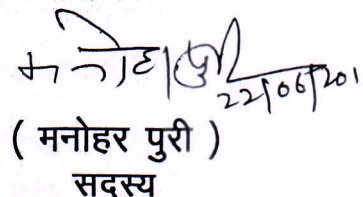 मनोहर पुरी
22/06/201
( मनोहर पुरी )
सदस्य